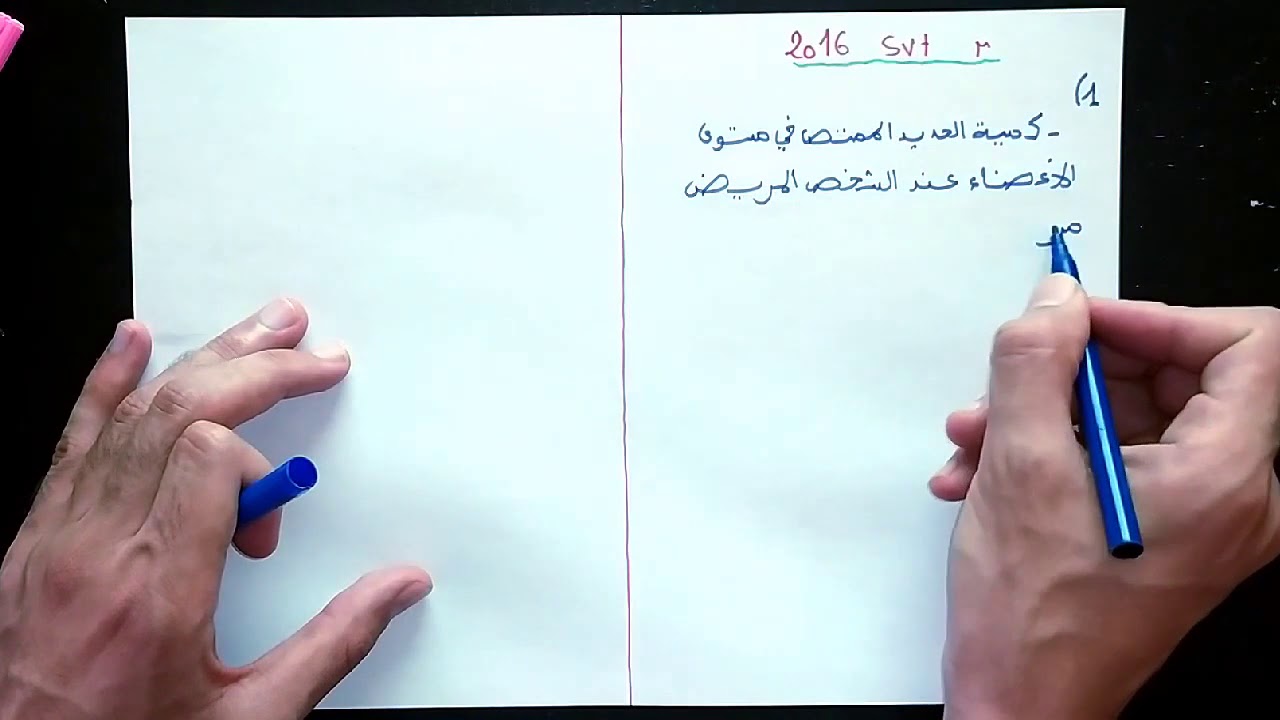 2016 svt r
1)
- كمية الحديد الممتص في مستوى
الأعضاء عند الشخص المريض